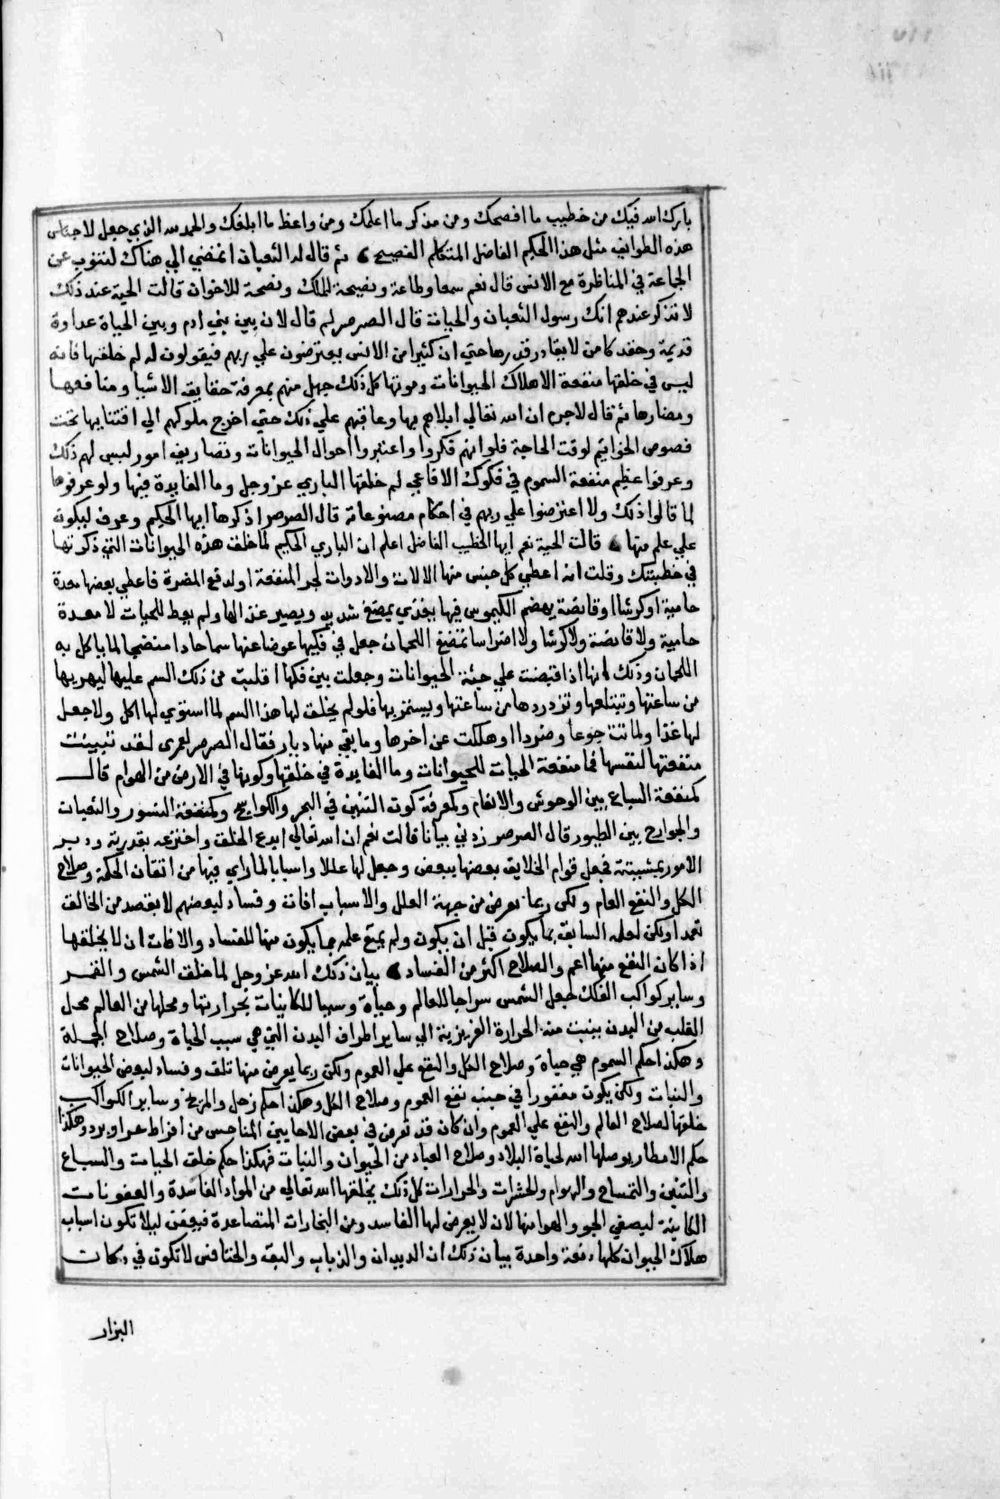 بارك الله فيك من خطيب ما افصحك ومن مذكر ما اعلمك ومن واعظ ما ابلغك والحمد لله الذي جعل لاجناس
هذه الطوايف مثل هذا الحكيم الفاضل المتكلم الفصيح ثم قال له الثعبان اتمضي الي هناك لتنوب عن
الجماعة في المناظرة مع الانس قال نعم سمعا وطاعة ونصيحة للملك ونصحة للاخوان قالت الحية عند ذلك
لا تذكر عندهم انك رسول الثعبان والحيات قال الصرصر لم قال لان بين بني ادم وبين الحياة عداوة
قديمة وحقد كامن لا يقادر قدرها حتي ان كثيرا من الانس يعترضون علي ربهم فيقولون له لم خلقتها فانه
ليس في خلقها منفعة الا هلاك الحيوانات وموتها كل ذلك جهل منهم بمعرفة حقايق الاشيا ومنافعها
ومضارها ثم قال لاجرم ان الله تعالي ابلاهم بها وعاقبهم علي ذلك حتي احوج ملوكهم الي اقتنايها تحت
فصوص الخواتيم لوقت الحاجة فلو انهم فكروا واعتبروا احوال الحيوانات وتصاريف امور لبس لهم ذلك
وعرفوا عظيم منفعة السموم في فكوك الافاعي لم خلقها الباري عز وجل وما الفايدة فيها ولو عرفوها
لما قالوا ذلك ولا اعترضوا علي ربهم في احكام مصنوعاته قال الصرصر اذكرها ايها الحكيم وعرف ليكون
علي علم منها قالت الحية نعم ايها الخطيب الفاضل اعلم ان الباري الحكيم لما خلق هذه الحيوانات التي ذكرتها
في خطبتك وقلت انه اعطي كل جنس منها الالات والادوات لجر المنفعة او لدفع المضرة فاعطي بعضها معدة
حامية او كرشا او قانصة يهضم الكيموس فيها بعد مضغ شديد ويصير غذا لها ولم يعط للحيات لا معدة
حامية ولا قانصة ولا كرشا ولا اضراسا تمضغ اللحمان جعل في فكيها عوضا عنها سما حادا منضجا لما ياكل به
اللحمان وذلك انها اذا قبضت علي جثة الحيوانات وجعلت بين فكيها اقلبت من ذلك السم عليها ليهريها
من ساعتها وتبتلعها وتزدردها من ساعتها ويستمريها فلو لم يخلق لها هذا السم لما استوي لها اكل ولا جعل
لها غذا ولماتت جوعا وضررا وهلكت عن اخرها وما بقي منها ديار فقال الصرصر لعمري لقد تبينت
منفعتها لنفسها فما منفعة الحيات للحيوانات وما الفايدة في خلقها وكونها في الارض من الهوام قال
كمنفعة السباع بين الوحوش والانعام وكمعرفة كون التنين في البحر والكواسج وكمنفعة النسور والثعبات
والجوارح بين الطيور قال الصرصر زدني بيانا قالت نعم ان الله تعالي ابدع الخلق واخترعه بقدريته ودبر
الامور بمشيته فجعل قوام الخلايق بعضها ببعض وجعل لها عللا واسبابا لما راي فيها من اتقان الحكمة وصلاح
الكل والنفع العام ولكن ربما يعرض من جهة العلل والاسباب افات وفساد لبعضهم لا بقصد من الخالف
تعمدا ولكن لعلمه السابق بما يكون قبل ان يكون ولم يمنع علمه بما يكون منها للفساد والافات ان لا يخلقها
اذا كان النفع منها اعم والصلاح اكثر من الفساد بيان ذلك الله عز وجل لما خلق الشمس والقمر
وساير كواكب الفلك لجعل الشمس سراجا للعالم وحياة وسببا للكاينات بحرارتها ومحلها من العالم محل
القلب من البدن يبنبت منه الحرارة الغريزية الي ساير اطراف البدن التي هي سبب الحياة وصلاح الجملة
وهكذا حكم السموم هي حياة وصلاح الكل والنفع علي العموم ولكن ربما يعرض منها تلف وفساد لبعض الحيوانات
والنبات ولكن يكون مغفورا في جنب نفع العموم وصلاح الكل وهكذا حكم زحل والمريخ وساير الكواكب
خلقها لصلاح العالم والنفع علي العموم وان كان قد يعرض في بعض الاحايين المناحس من افراط حر او برد وهكذا
حكم الامطار يوصلها الله لحياة البلاد وصلاح العباد من الحيوان والنبات فهكذا حكم خلق الحيات والسباع
والتنين والتمساح والهوام والحشرات والجرارات كل ذلك يخلقها الله تعالي من المواد الفاسدة والعفونات
الكاينة ليصفي الجو والهوا منها لان لا يعرض لها الفاسد ومن البخارات المتصاعدة فيعفن ليلا تكون اسباب
هلاك الحيوان كلها دفعة واحدة بيان ذلك ان الديدان والذباب والبق والخنافس لا تكون في دكات
البزار